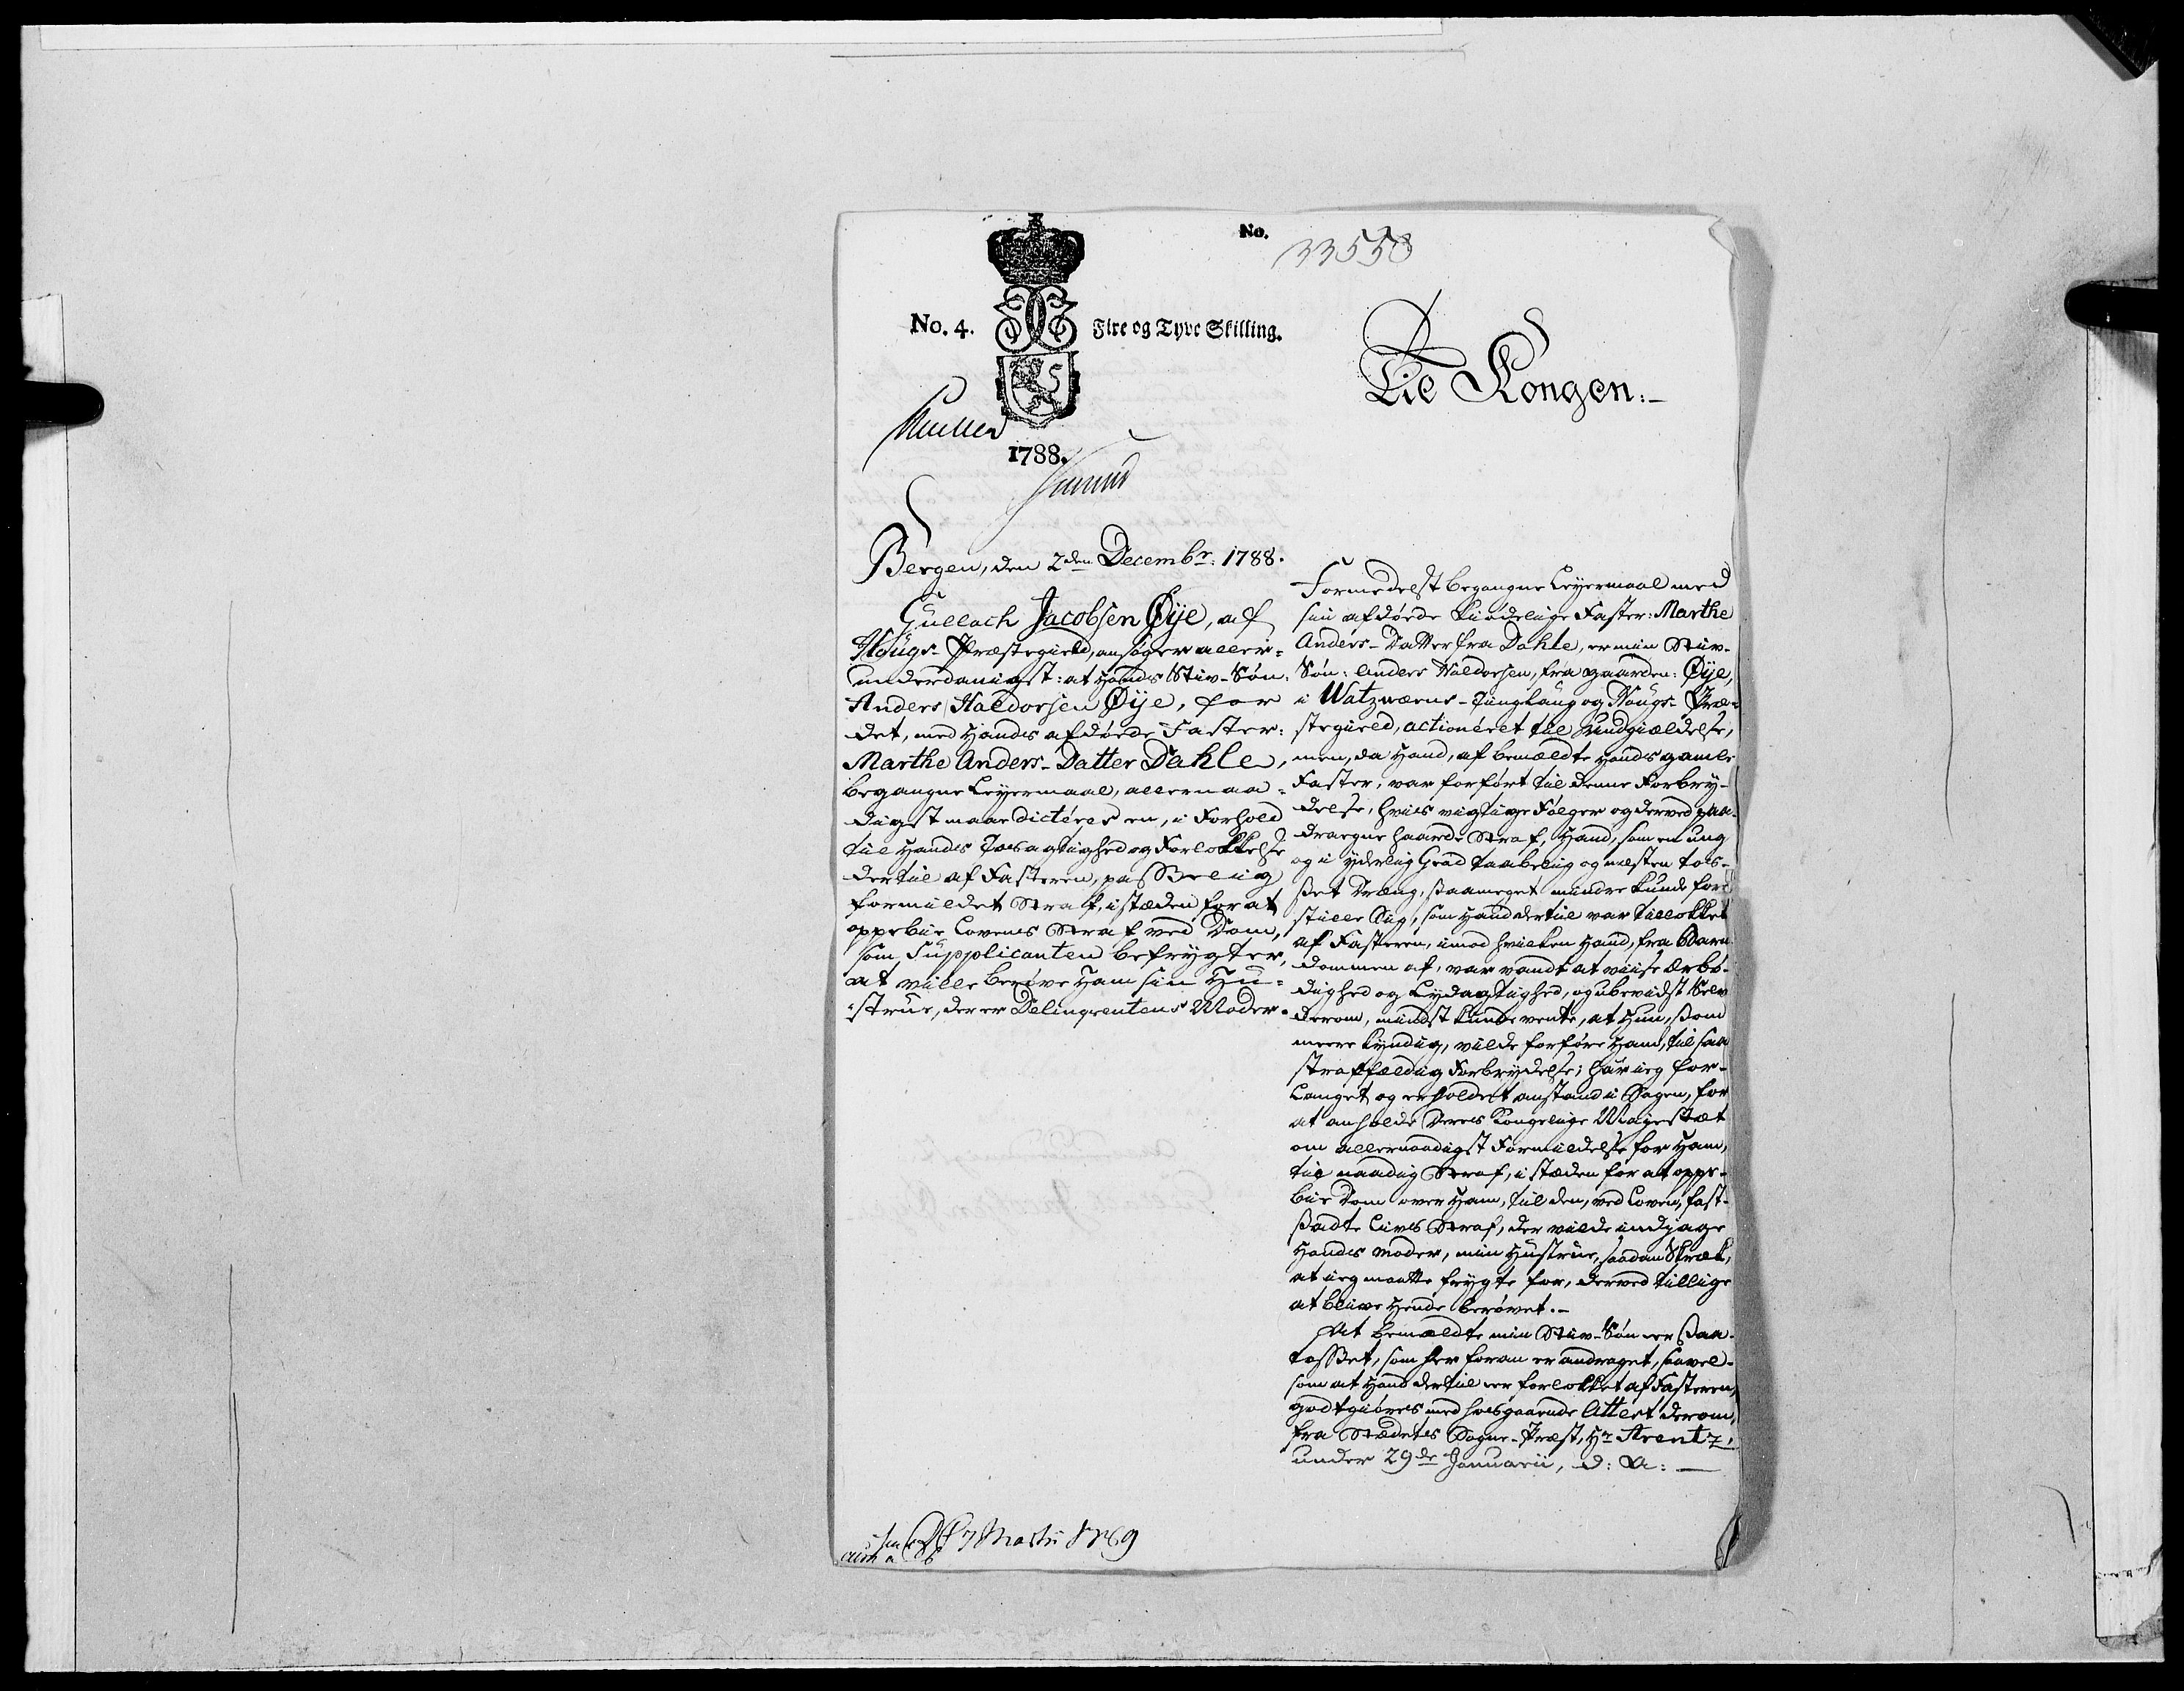 No.
33558
No. 4.
Fire og Tyve Skilling.
1788.
Til Kongen:-
Bergen, den 2den Decembr: 1788.
Gullach Jacobsen Øije, af
Hougs-Præstegield, ansøger aller-
underdanigst: at Hands Stiv-Søn:
Anders Haldorsen Øije, for
det, med Hands afdøede Faster:
Marthe Anders-Datter Dahle,
begangne Leyermaal, allernaa-
digst maae dicteres en, i Forhold
til Hands Taasagtighed og Forlokkelse
dertil af Fasteren, passelig
formildet Straf, i stæden for at
oppebie Lovens Straf ved Dom,
som Supplicanten befrygter,
at ville berøve Ham sin Hu-
strue, der er Delinqventens Moder.
Formedelst begangne Leyermaal med
sin afdøede kiødelige Faster: Marthe
Anders-Datter fra Dahle, er min Stiv-
Søn: Anders Haldorsen, fra gaarden: Øije,
i Watzwærns-Tinglaug og Hougs-Præ-
stegield, actioneret til Undgiældelse,
men, da Hand, af bemældte Hands gamle
Faster, var forført til denne Forbry-
delse, hvis vigtige Følger og derved paa-
dragne haarde Straf, Hand, som en ung
og i yderlig Grad taabelig og næsten tos-
set Dreng, saameget mindre kunde fore-
stille Sig, som Hand dertil var tillokket
af Fasteren, imod hvilken Hand, fra Barn-
dommen af, var vandt at viise ærbø-
dighed og Lydagtighed, og ubevidst Selv
derom, mindst kunde vente, at Hun, som
meere kyndig, vilde forføre Ham, til saa
straffældig Forbrydelse; har ieg for-
langet og erholdet anstand i Sagen, for
at anholde Deres Kongelige Mayestæt
om allernaadigst Formildelse for Ham,
til naadig Straf, i stæden for at oppe-
bie Dom over Ham, til den, ved Loven, fast-
sadte Livs Straf, der vilde indjage
Hands Moder, min Hustrue, saadan Skræk,
at ieg maatte frygte for, derved tillige
at blive Hende berøvet.-
At bemældte min Stiv-Søn er saa
tosset, som her foran er andraget, saavel-
som at Hand dertil er forlokket af Fasteren,
godtgiøres med hosgaaende Attest derom,
fra Stædets Sogne-Præst, Hr Arentz,
under 29de Januarii, d: A: —
7 Martii 1789